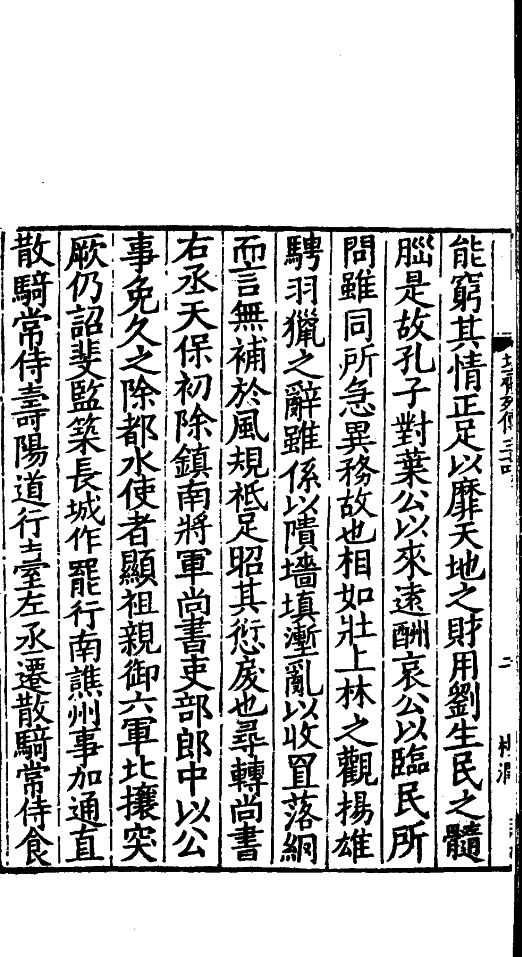 能窮其情正足以靡天地之財用劉生民之髓
腦是故孔子對葉公以來遠酬哀公以臨民所
問雖同所急異務故也相如壯上林之觀揚雄
騁羽獵之辭雖係以隤墻填壍亂以收罝落網
而言無補於風規祇足昭其愆戾也尋轉尚書
右丞天保初除鎮南將軍尚書吏部郎中以公
事免久之除都水使者顯祖親御六軍北攘突
厥仍詔斐監築長城作罷行南譙州事加通直
散騎常侍壽陽道行臺左丞遷散騎常侍食